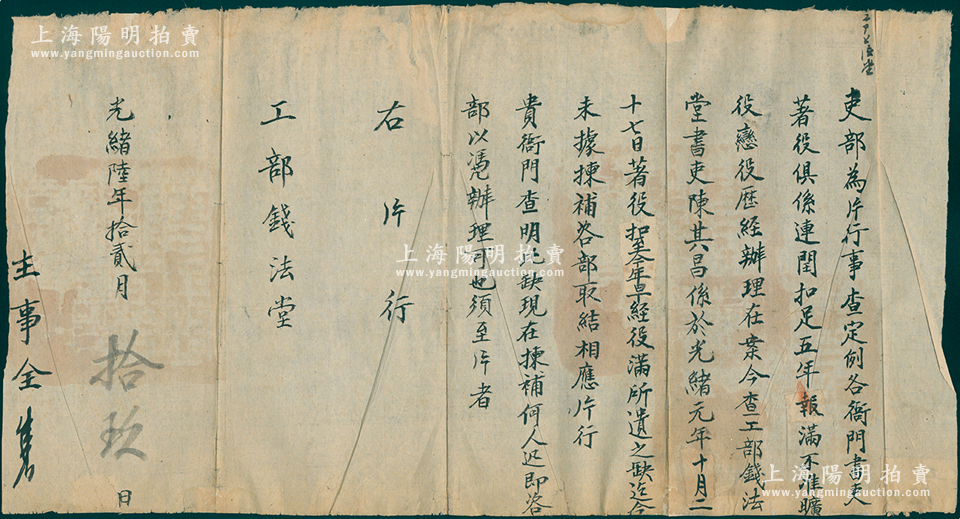 吏部為片行事查定例各衙門書吏
著役俱係連閏扣足五年報滿不准曠
役戀役歷經辦理在案今查工部錢法
堂書吏陳其昌係於光緒元年十月二
十七日著役扣至今年早經役滿所遺之缺迄今
未據揀補咨部取結相應片行
貴衙門查明此缺現在揀補何人迅即咨
部以憑辦理可也須至片者
右片行
工部錢法堂
光緒陸年拾貳月拾玖日
主事全
上海陽明拍賣
www.yangmingauction.com
上海陽明拍賣
www.yangmingauction.com
上海陽明拍賣
www.yangmingauction.com
上海陽明拍賣
www.yangmingauction.com
上海陽明拍賣
www.yangmingauction.com